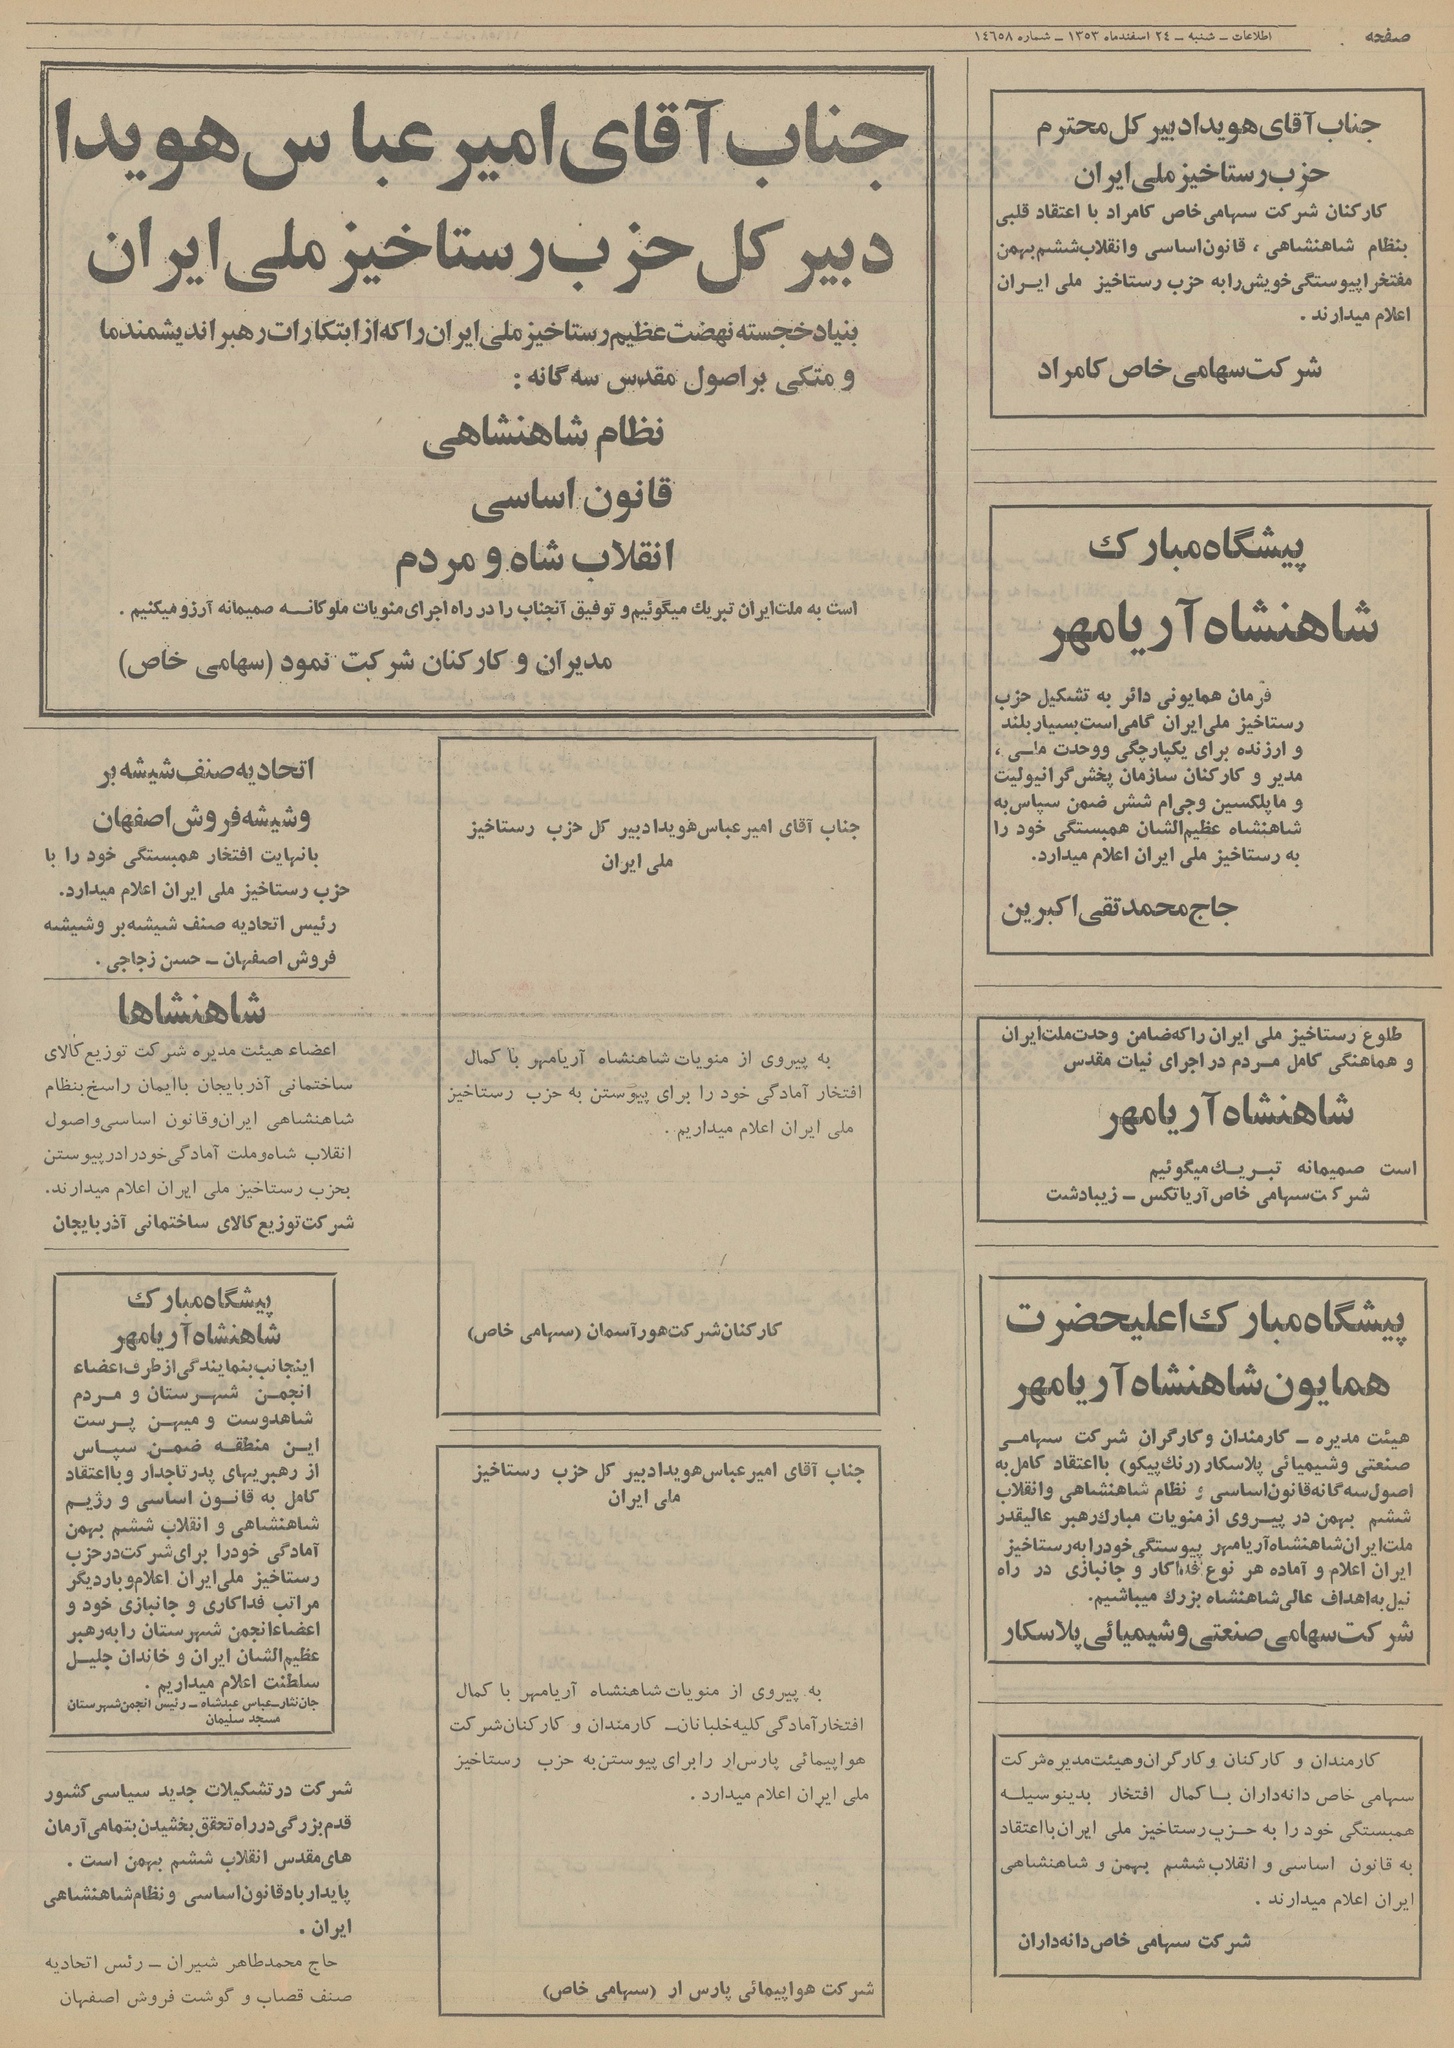 صفحه
اطلاعات ـ شنبه ـ ۲۴ اسفندماه ۱۳۵۳ ـ شماره ۱٤٦۵۸
جناب آقای هویدا دبیر کل محترم
حزب رستاخیز ملی ایران
کارکنان شرکت سهامی خاص کامراد با اعتقاد قلبی
بنظام شاهنشاهی ، قانون اساسی وانقلاب ششم بهمن
مفتخرا پیوستگی خویش را به حزب رستاخیز ملی ایـران
اعلام میدارند .
شرکت سهامی خاص کامراد
پیشگاه مبارک
شاهنشاه آریامهر
فرمان همایونی دائر به تشکیل حزب
رستاخیز ملی ایران گامی است بسیار بلند
و ارزنده برای یکپارچگی ووحدت ملـی ،
مدیر و کارکنان سازمان پخش گرانیولیت
و ماپلکسین وجی ام شش ضمن سپاس به
شاهنشاه عظیم الشان همبستگی خود را
به رستاخیز ملی ایران اعلام میدارد.
حاج محمدتقی اکبرین
طلوع رستاخیز ملی ایران را که ضامن وحدت ملت ایران
و هماهنگی کامل مـردم در اجرای نیات مقدس
شاهنشاه آریامهر
است صمیمانه تبریـك میگوئیم
شرکت سهامی خاص آریاتکس ـ زیبادشت
پیشگاه مبارک اعلیحضرت
همایون شاهنشاه آریامهر
هیئت مدیره ـ کارمندان وکارگران شرکت سهامـی
صنعتی وشیمیائی پلاسکار (رنك پیکو) بااعتقاد کامل به
اصول سه گانه قانون اساسی و نظام شاهنشاهی وانقلاب
ششم بهمن در پیـروی از منویات مبارك رهبر عالیقدر
ملت ایران شاهنشاه آریامهر پیوستگی خودرا به رستاخیز
ایران اعلام و آماده هر نوع فداکار و جانبازی در راه
نیل به اهداف عالی شاهنشاه بزرك میباشیم.
شرکت سهامی صنعتی وشیمیائی پلاسکار
کارمندان و کارکنان وکارگران وهیئت مدیره شرکت
سهامی خاص دانه داران بـا کمال افتخار بدینوسیلـه
همبستگی خود را به حـزب رستاخیز ملی ایران بااعتقاد
به قانون اساسی و انقلاب ششم بهمن و شاهنشاهی
ایران اعلام میدارند .
شرکت سهامی خاص دانه داران
جناب آقای امیر عباس هویدا
دبیر کل حزب رستاخیز ملی ایران
بنیاد خجسته نهضت عظیم رستاخیز ملی ایران را که از ابتکارات رهبر اندیشمند ما
و متکی بر اصول مقدس سه گانه :
نظام شاهنشاهی
قانون اساسی
انقلاب شاه و مردم
است به ملت ایران تبریك میگوئیم و توفیق آنجناب را در راه اجرای منویات ملوکانـه صمیمانه آرزو میکنیم .
مدیران و کارکنان شرکت نمود (سهامی خاص)
جناب آقای امیر عباس هویدا دبیر کل حزب رستاخیز
ملی ایران
به پیروی از منویات شاهنشاه آریامهر با کمال
افتخار آمادگی خود را برای پیوستن به حزب رستاخیز
ملی ایران اعلام میداریم .
کارکنان شرکت هورآسمان (سهامی خاص)
جناب آقای امیر عباس هویدا دبیر کل حزب رستاخیز
ملی ایران
به پیروی از منویات شاهنشاه آریامهر با کمال
افتخار آمادگی کلیه خلبانان ـ کارمندان و کارکنان شرکت
هواپیمائی پارس ار را برای پیوستن به حزب رستاخیز
ملی ایران اعلام میدارد .
شرکت هواپیمائی پارس ار (سهامی خاص)
اتحادیه صنف شیشه بر
وشیشه فروش اصفهان
بانهایت افتخار همبستگی خود را با
حزب رستاخیز ملی ایران اعلام میدارد.
رئیس اتحادیه صنف شیشه بر وشیشه
فروش اصفهان ـ حسن زجاجی .
شاهنشاها
اعضاء هیئت مدیره شرکت توزیع کالای
ساختمانی آذربایجان باایمان راسخ بنظام
شاهنشاهی ایران وقانون اساسی واصول
انقلاب شاه وملت آمادگی خودرا در پیوستن
بحزب رستاخیز ملی ایران اعلام میدارند.
شرکت توزیع کالای ساختمانی آذربایجان
پیشگاه مبارک
شاهنشاه آریامهر
اینجانب بنمایندگی از طرف اعضاء
انجمن شهرستان و مـردم
شاهدوست و میهن پـرست
ایـن منطقـه ضمـن سپاس
از رهبریهای پدر تاجدار و بااعتقاد
کامل به قانون اساسی و رژیم
شاهنشاهی و انقلاب ششم بهمن
آمادگی خودرا برای شرکت درحزب
رستاخیز ملی ایران اعلام و باردیگر
مراتب فداکاری و جانبازی خود و
اعضاء انجمن شهرستان را به رهبر
عظیم الشان ایران و خاندان جلیـل
سلطنت اعلام میداریم .
جان نثار ـ عباس عبدشاه ـ رئیس انجمن شهرستان
مسجد سلیمان
شرکت در تشکیلات جدید سیاسی کشور
قدم بزرگی در راه تحقق بخشیدن بتمامی آرمان
های مقدس انقلاب ششم بهمن است .
پایدار باد قانون اساسی و نظام شاهنشاهی
ایران .
حاج محمدطاهر شیران ـ رئس اتحادیه
صنف قصاب و گوشت فروش اصفهان